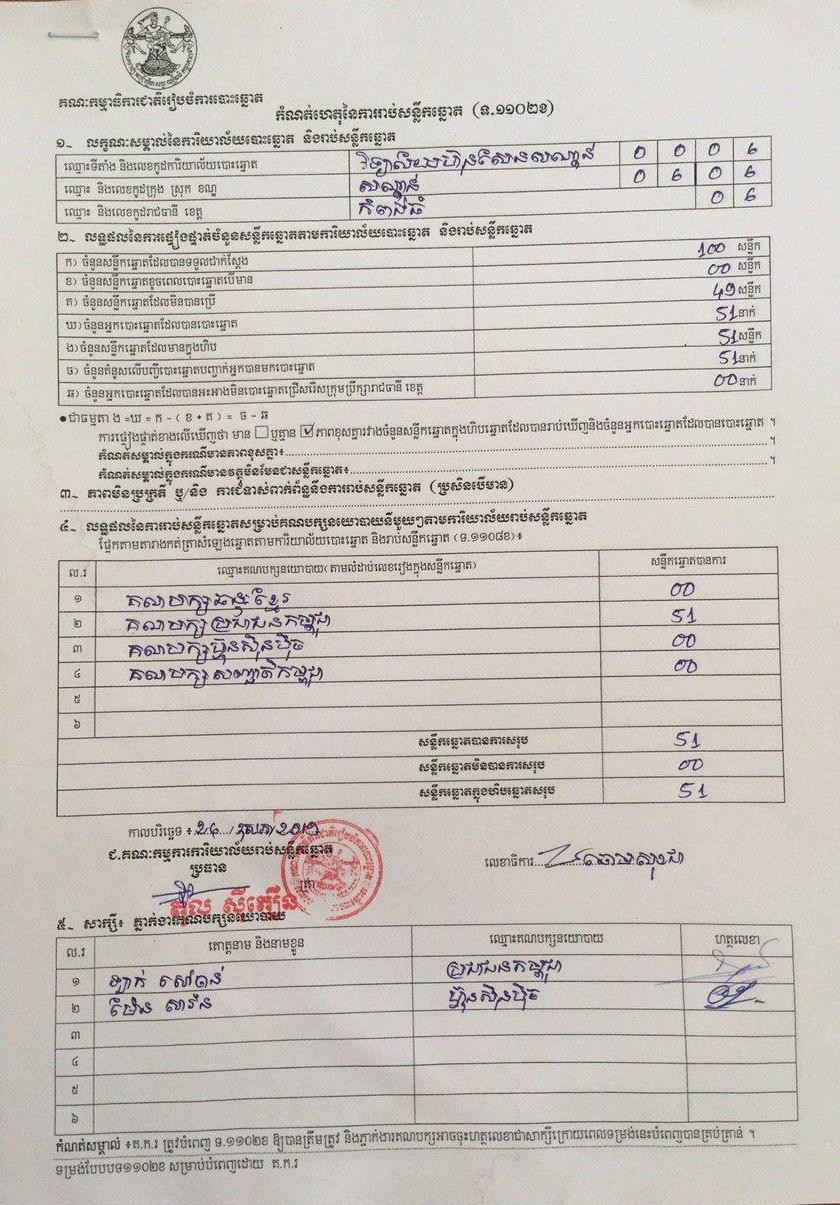 គណៈកម្មាធិការជាតិរៀបចំការបោះឆ្នោត
កំណត់ហេតុនៃការរាប់សន្លឹកឆ្នោត (ទ.១១០២ខ)
១~ លក្ខណៈសម្គាល់នៃការិយាល័យបោះឆ្នោត និងរាប់សន្លឹកឆ្នោត
ឈ្មោះទីតាំង និងលេខកូដការិយាល័យបោះឆ្នោត វិទ្យាល័យហ៊ុនសែនសណ្តាន់ 0 0 0 6
ឈ្មោះ និងលេខកូដក្រុង ស្រុក ខណ្ឌ សណ្តាន់ 0 6 0 6
ឈ្មោះ និងលេខកូដរាជធានី ខេត្ត កំពង់ធំ 0 6
២~ លទ្ធផលនៃការផ្ទៀងផ្ទាត់ចំនួនសន្លឹកឆ្នោតតាមការិយាល័យបោះឆ្នោត និងរាប់សន្លឹកឆ្នោត
ក) ចំនួនសន្លឹកឆ្នោតដែលបានទទួលជាក់ស្តែង 100 សន្លឹក
ខ) ចំនួនសន្លឹកឆ្នោតខូចពេលបោះឆ្នោតបើមាន 00 សន្លឹក
គ) ចំនួនសន្លឹកឆ្នោតដែលមិនបានប្រើ 49 សន្លឹក
ឃ) ចំនួនអ្នកបោះឆ្នោតដែលបានបោះឆ្នោត 51 នាក់
ង) ចំនួនសន្លឹកឆ្នោតដែលមានក្នុងហិប 51 សន្លឹក
ច) ចំនួនគំនូសលើបញ្ជីបោះឆ្នោតបញ្ជាក់អ្នកបានមកបោះឆ្នោត 51 នាក់
ឆ) ចំនួនអ្នកបោះឆ្នោតដែលបានអះអាងមិនបោះឆ្នោតជ្រើសរើសក្រុមប្រឹក្សារាជធានី ខេត្ត 00 នាក់
● ជាធម្មតា ង = ឃ = ក - ( ខ + គ ) = ច - ឆ
ការផ្ទៀងផ្ទាត់ខាងលើឃើញថា មាន ☐ ឬគ្មាន ☑ ភាពខុសគ្នារវាងចំនួនសន្លឹកឆ្នោតក្នុងហិបឆ្នោតដែលបានរាប់ឃើញនិងចំនួនអ្នកបោះឆ្នោតដែលបានបោះឆ្នោត ។
កំណត់សម្គាល់ក្នុងករណីមានភាពខុសគ្នា៖ ។
កំណត់សម្គាល់ក្នុងករណីមានវត្ថុមិនមែនជាសន្លឹកឆ្នោត៖ ។
៣~ ភាពមិនប្រក្រតី ឬ/និង ការជំទាស់ពាក់ព័ន្ធនឹងការរាប់សន្លឹកឆ្នោត (ប្រសិនបើមាន)
៤~ លទ្ធផលនៃការរាប់សន្លឹកឆ្នោតសម្រាប់គណបក្សនយោបាយនីមួយៗតាមការិយាល័យរាប់សន្លឹកឆ្នោត
ផ្អែកតាមតារាងកត់ត្រាសំឡេងឆ្នោតតាមការិយាល័យបោះឆ្នោត និងរាប់សន្លឹកឆ្នោត (ទ.១១០៨ខ)៖
ល.រ ឈ្មោះគណបក្សនយោបាយ(តាមលំដាប់លេខរៀងក្នុងសន្លឹកឆ្នោត) សន្លឹកឆ្នោតបានការ
១ គណបក្សឆន្ទៈខ្មែរ 00
២ គណបក្សប្រជាជនកម្ពុជា 51
៣ គណបក្សហ៊្វុនស៊ិនប៉ិច 00
៤ គណបក្សសញ្ជាតិកម្ពុជា 00
៥
៦
សន្លឹកឆ្នោតបានការសរុប 51
សន្លឹកឆ្នោតមិនបានការសរុប 00
សន្លឹកឆ្នោតក្នុងហិបឆ្នោតសរុប 51
កាលបរិច្ឆេទ ៖
ជ.គណៈកម្មការការិយាល័យរាប់សន្លឹកឆ្នោត
ប្រធាន ត្រា
លេខាធិការ
៥~ សាក្សី៖ ភ្នាក់ងារគណបក្សនយោបាយ
ល.រ គោត្តនាម និងនាមខ្លួន ឈ្មោះគណបក្សនយោបាយ ហត្ថលេខា
១ ប្រជាជនកម្ពុជា
២ ម៉ែន សារ៉ន ហ៊្វុនស៊ិនប៉ិច
៣
៤
៥
៦
កំណត់សម្គាល់ ៖ គ.ក.រ ត្រូវបំពេញ ទ.១១០២ខ ឱ្យបានត្រឹមត្រូវ និងភ្នាក់ងារគណបក្សអាចចុះហត្ថលេខាជាសាក្សីក្រោយពេលទម្រង់នេះបំពេញបានគ្រប់គ្រាន់ ។
ទម្រង់បែបបទ១១០២ខ សម្រាប់បំពេញដោយ គ.ក.រ